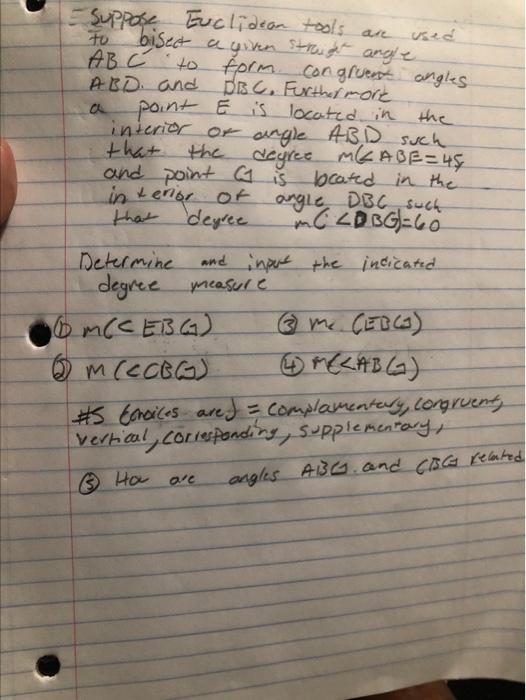 = Suppose Euclidean tools are used
to bisect a given straight angle
ABC to form congruent angles
ABD. and DBC. Furthermore
a point E is located in the
interior of angle ABD such
that the degree m(< ABE = 45,
and point G is located in the
interior of angle DBC such
that degree m( <DBG)=60
Determine and input the indicated
degree measure
① m(< EBG) ③ m< (EBG)
② m (<CBG) ④ m(<ABG)
#5 (choices are) = complamentary, congruent,
vertical, corresponding, supplementary,
⑤ How are angles ABG. and CBG related